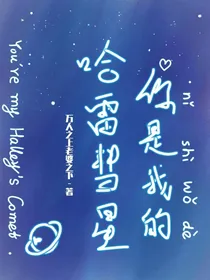 nǐ shì wǒ dè
你是我的
哈雷彗星
万人之上老婆之下·著
You're my Halley's Comet.